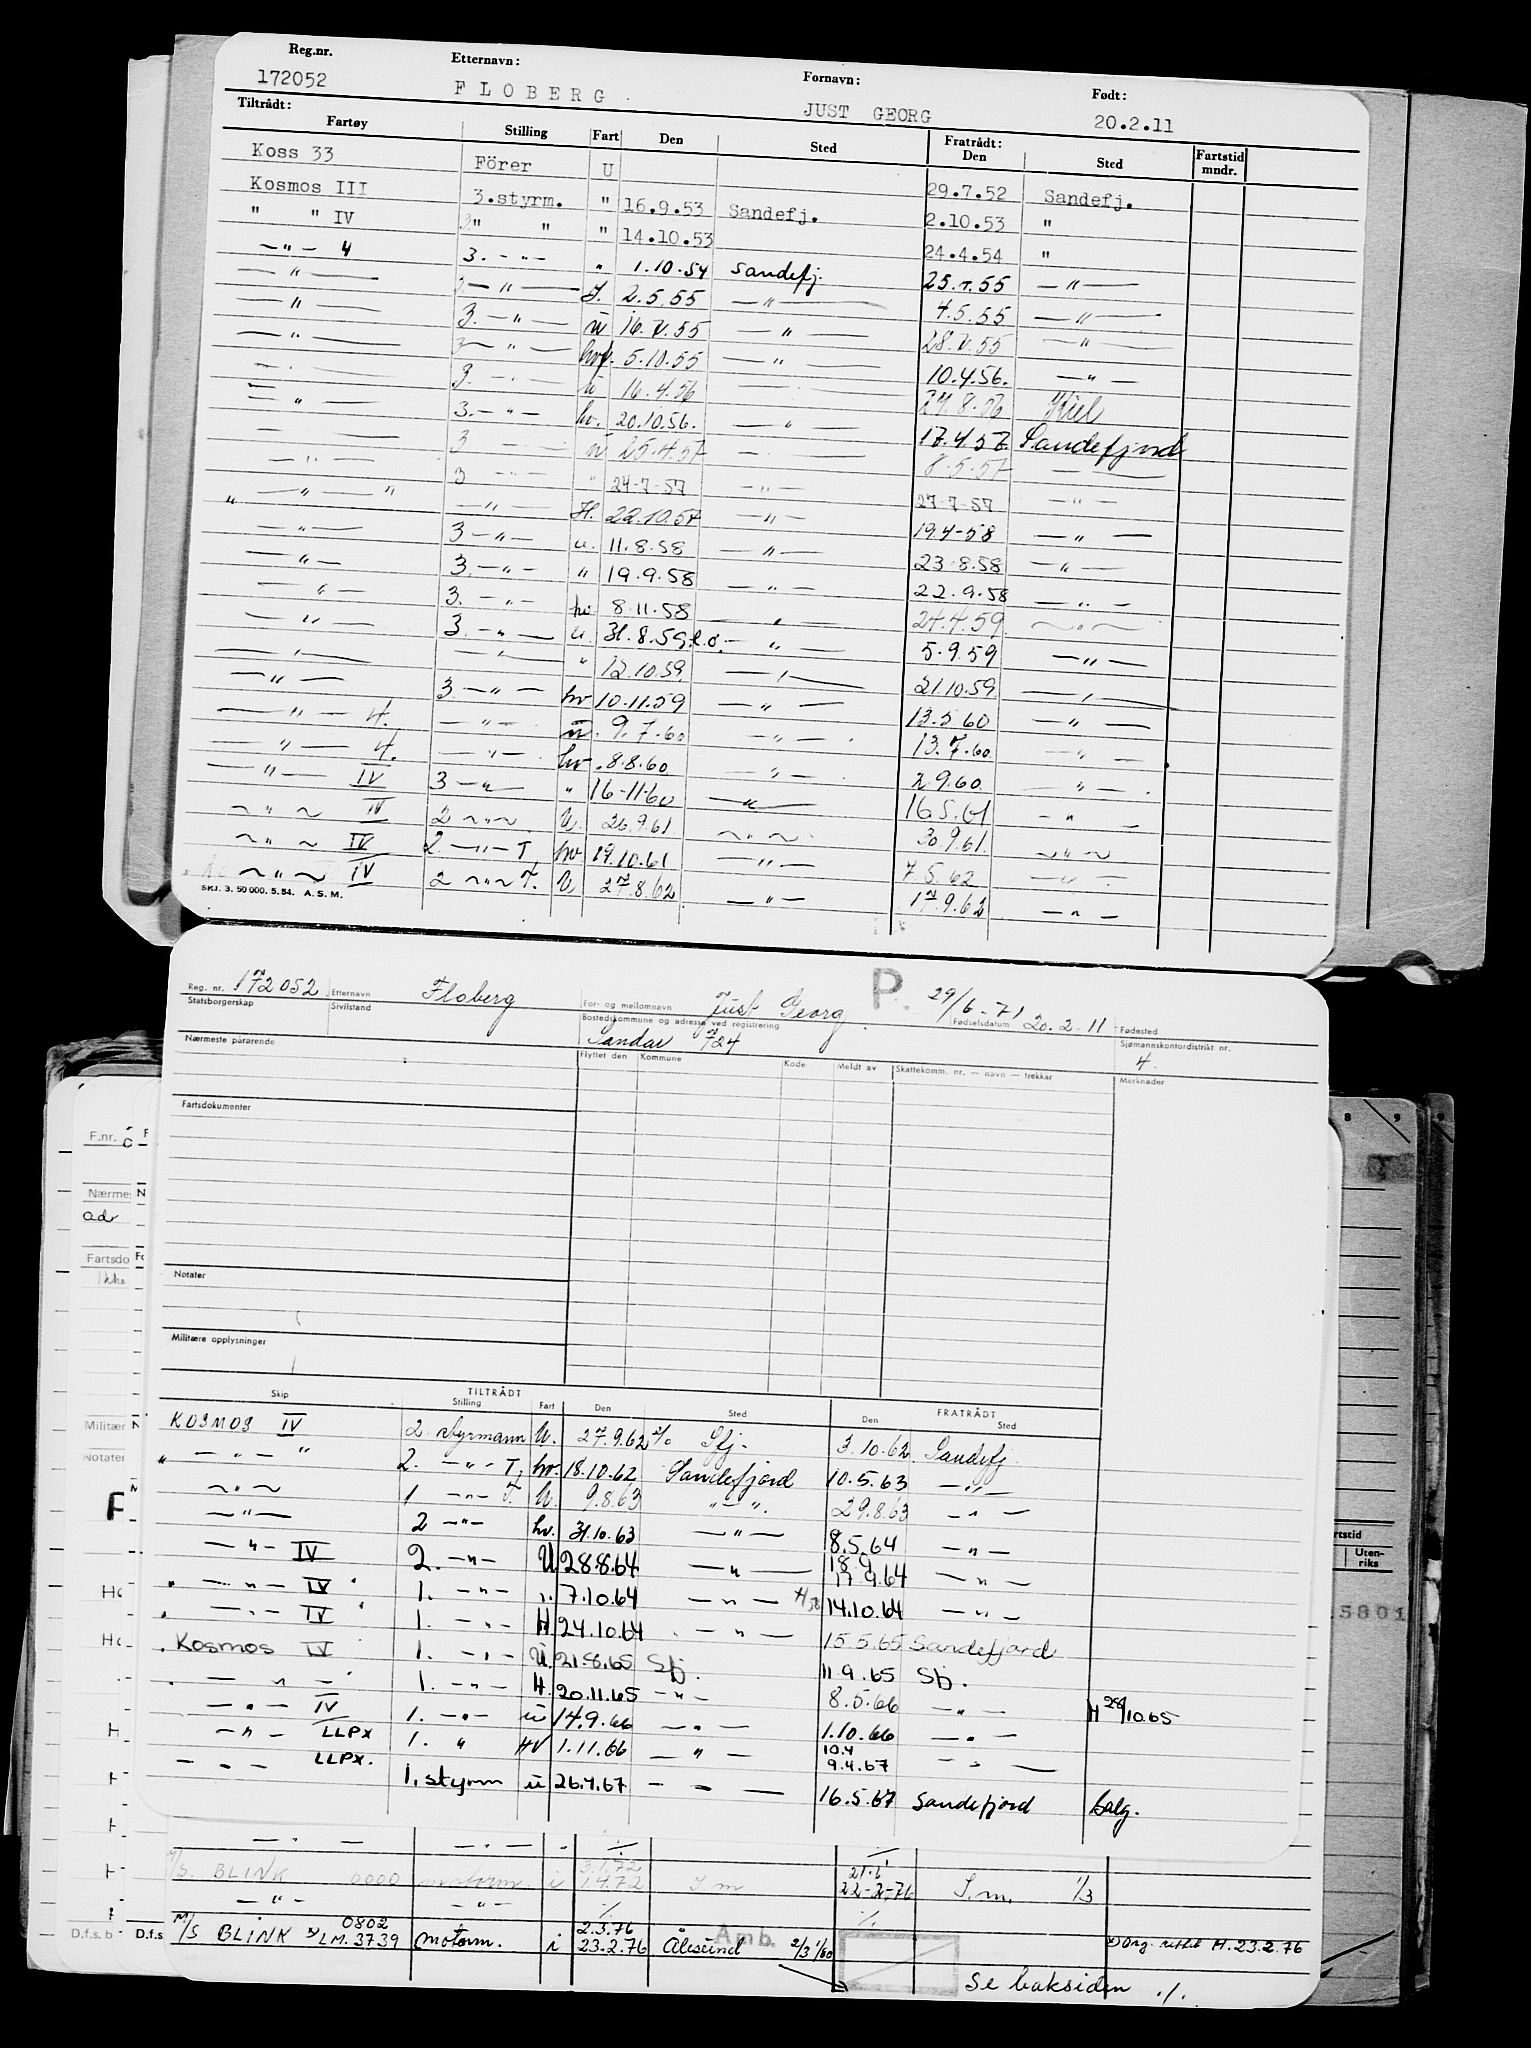 Reg.nr. Etternavn: Fornavn: Født:
172052 FLOBERG JUST GEORG 20.2.11
Tiltrådt: Fratrådt:
Fartøy Stilling Fart Den Sted Den Sted Fartstid mndr.
Koss 33 Förer U 29.7.52 Sandefj.
Kosmos III 3.styrm. " 16.9.53 Sandefj. 2.10.53 "
" " IV 3" " " 14.10.53 24.4.54 "
—"— 4 3. -"- " 1.10.54 Sandefj. 25.4.55 —"—
—"— —"— 2.5.55 —"— 4.5.55 —"—
—"— 3. —"— ü 16.V.55 —"— 28.V.55 —"—
—"— 3 —"— hvf. 5.10.55 —"— 10.4.56. —"—
—"— 3. —"— ü 16.4.56 —"— 27.8.56 Kiel
—"— 3. —"— hv. 20.10.56. —"— 17.4.57. Sandefjord
—"— 3 —"— ü 25.4.57 —"— 8.5.57 —"—
—"— 3 —"— " 24-7-57 —"— 27-7-57 —"—
" —"— " —"— H. 22.10.57 —"— 19.4-58 —"—
—"— 3 —"— u. 11.8.58 —"— 23.8.58 —"—
—"— 3. —"— " 19.9.58 —"— 22.9.58 —"—
—"— 3. —"— hv. 8.11.58 —"— 24.4.59 —"—
—"— 3. —"— u. 31.8.59 —"— 5.9.59 —"—
—"— —"— " 12.10.59 —"— 21.10.59 —"—
—"— 3. —"— hv 10.11.59 —"— 13.5.60 —"—
—"— 4. —"— ü. 9.7.60 —"— 13.7.60 —"—
—"— 4. —"— hv. 8.8.60 —"— 2.9.60 —"—
—"— IV 3 —"— " 16-11-60 —"— 16.5.61 —"—
—"— IV 2 —"— U. 26.9.61 —"— 30.9.61. —"—
—"— IV 2. —"— T. hv 19.10.61 —"— 7.5.62 —"—
—"— IV 2 —"— T. U 27.8.62 —"— 17.9.62 —"—
SKJ. 3. 50 000. 5.54. A. S. M.
P. 29/6-71
Reg. nr. 172052 Etternavn Floberg For- og mellomnavn Just Georg Fødselsdatum 20.2.11 Fødested
Statsborgerskap Sivilstand Bostedskommune og adresse ved registrering Sandar 724 Sjømannskontordistrikt nr. 4
Nærmeste pårørende Flyttet den Kommune Kode Meldt av Skattekomm. nr. — navn — trekkar Merknader
Fartsdokumenter
Notater
Militære opplysninger
TILTRÅDT FRATRÅDT
Skip Stilling Fart Den Sted Den Sted
KOSMOS IV 2. styrmann U. 27.9.62 Sfj. 3.10.62 Sandefj.
" —"— " 2. —"— T. hv. 18.10.62 Sandefjord 10.5.63 —"—
—"— 1 —"— T. U. 9.8.63 "—". 29.8.63 —"—
—"— 2 —"— hv. 31.10.63 —"— 8.5.64 —"—
—"— IV 2. —"— U 28.8.64 —"— 18.9 17.9.64 —"—
" —"— IV " 1. —"— " 7.10.64 —"— 14.10.64 —"—
" —"— IV " 1. —"— H 24.10.64 —"— 15.5.65 Sandefjord
Kosmos IV 1. —"— U. 21.8.65 Sfj. 11.9.65 Sfj.
—"— 1. —"— H. 20.11.65 —"— 8.5.66 —"— H 28/10.65
—"— IV 1. —"— ü 14.9.66 —"— 1.10.66 —"—
—"— LLPX 1. " HV 1.11.66 —"— 10.4 9.4.67 —"—
—"— LLPX. 1. styrm ü 26.4.67 —"— 16.5.67 Sandefjord salg.
—"— —"— "
M/S. BLINK i 3.1.72 1.4.72 21.2 22-2-76 1/3
—"— —"—
M/S BLINK x) 0802 LM.3739 motorm. i 2.3.76 23.2.76 Ålesund Amb. x) Org. rettet H.23.2.76
Se baksiden ./.
F.nr.
Nærme
adr
Fartsdo
Ikke
Militær
Notater
F
D.f.s. b D.f.s
8 9
rtstid
Uten-riks
5801